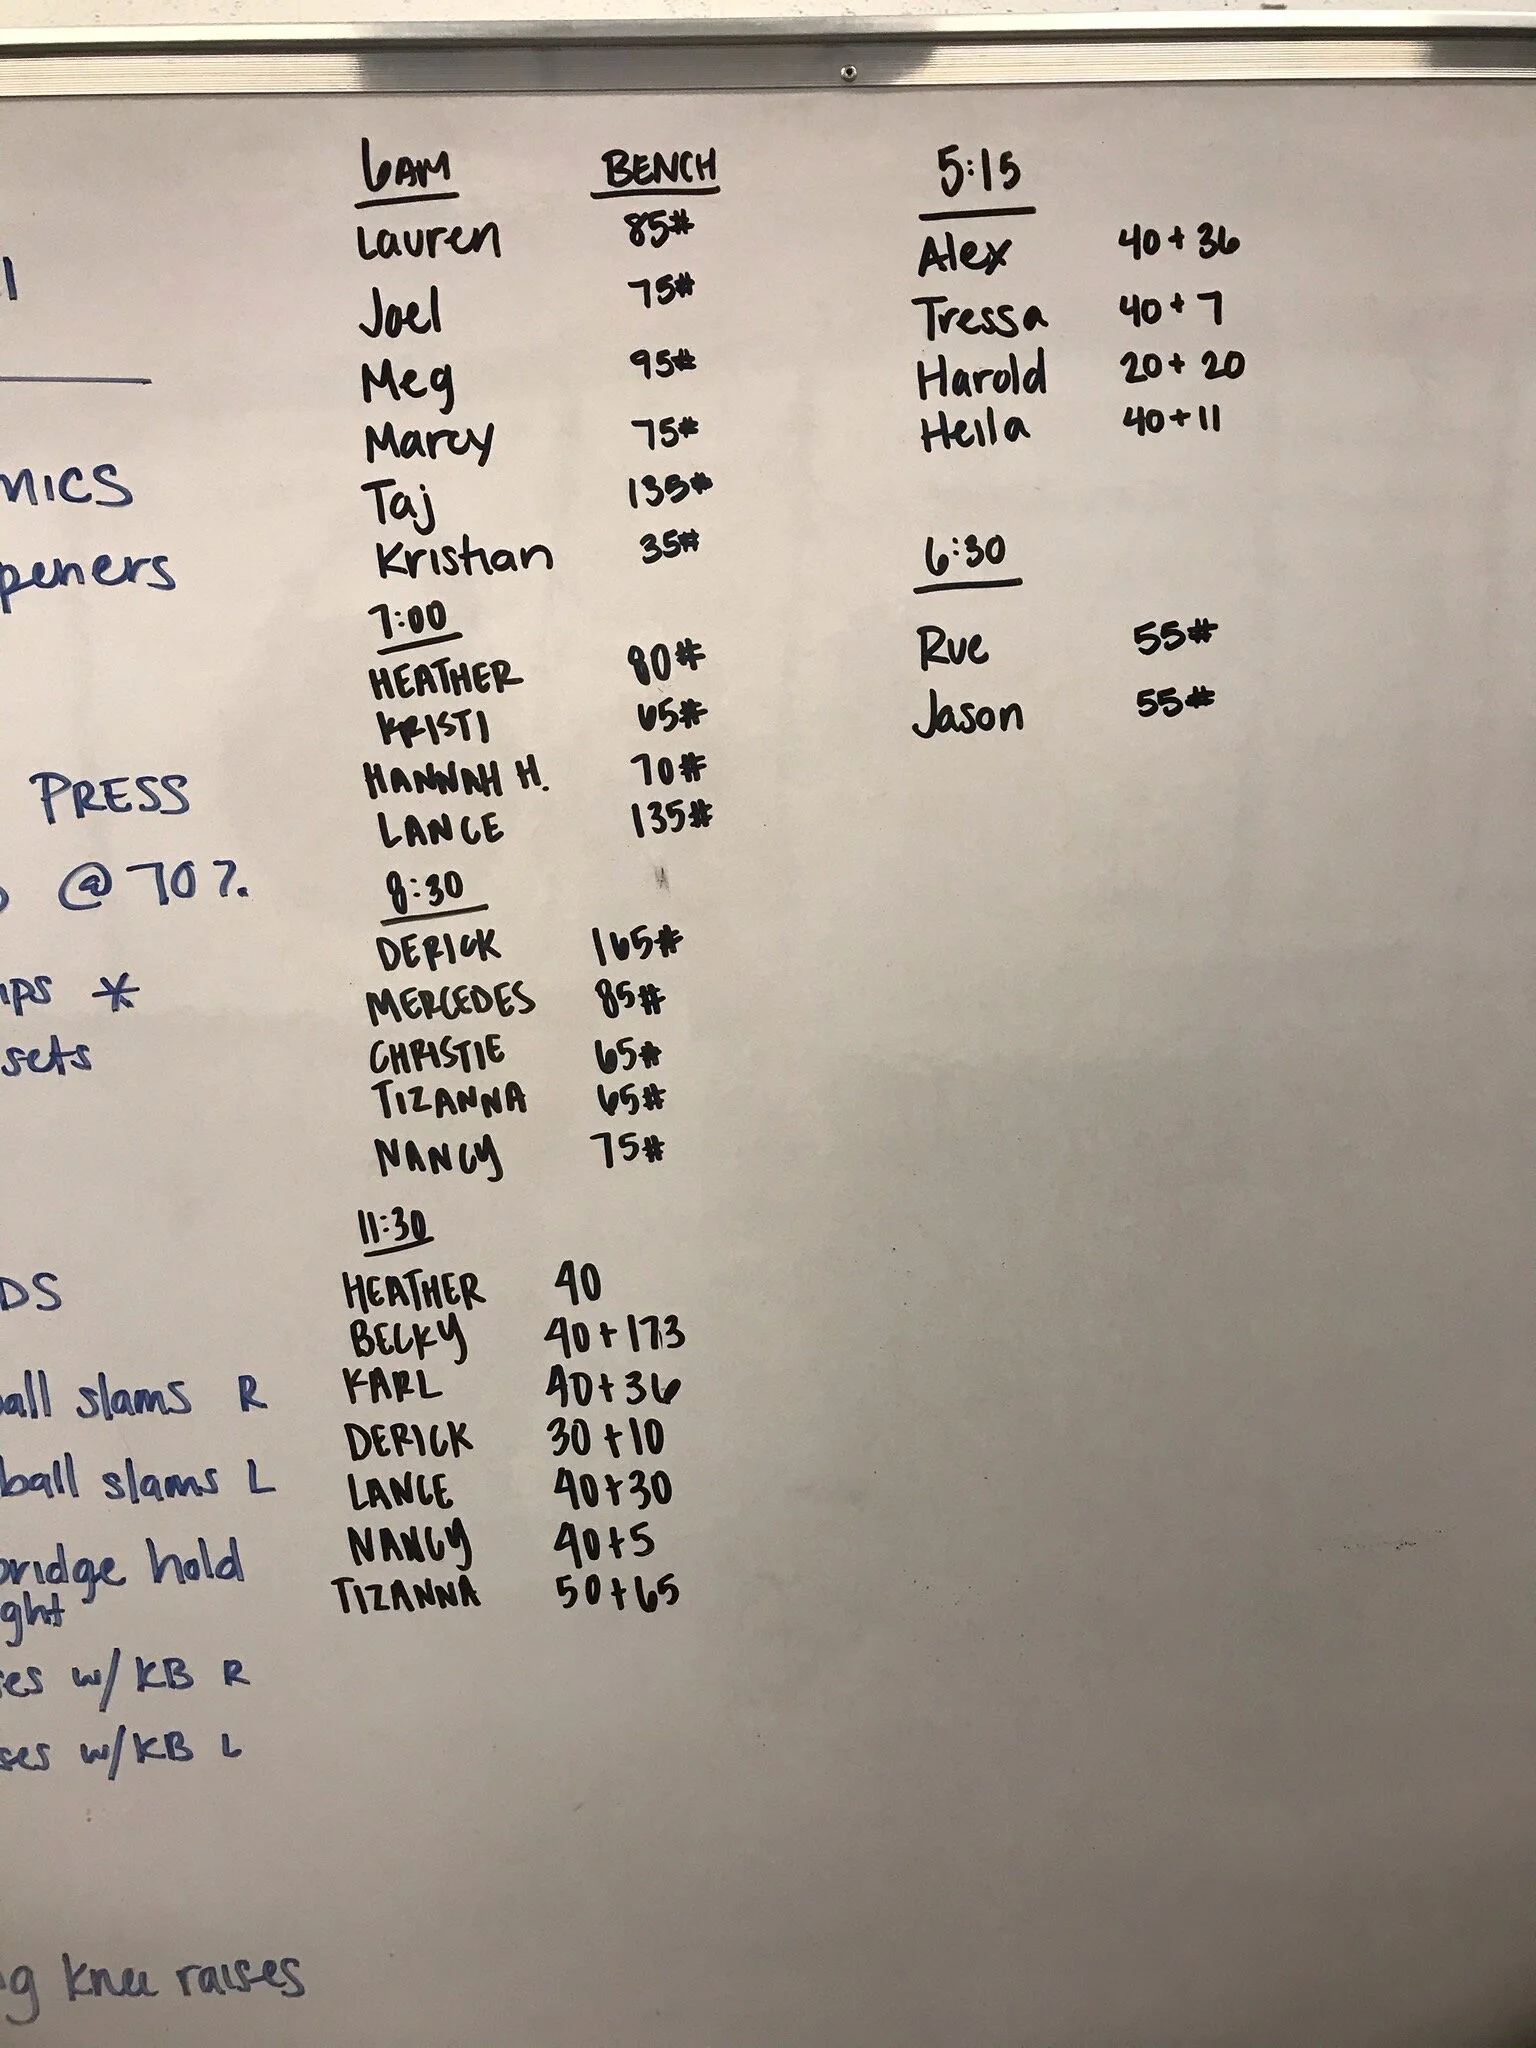 MICS
PRESS
@ 70%
*
sets
slams R
ball slams L
hold
w/KB R
w/KB L
knee raises
6AM BENCH
Lauren 85#
Joel 75#
Meg 95#
Marcy 75#
Taj 135#
Kristian 35#
7:00
HEATHER 80#
KRISTI 65#
HANNAH H. 70#
LANCE 135#
8:30
DERICK 165#
MERCEDES 85#
CHRISTIE 65#
TIZANNA 65#
NANCY 75#
11:30
HEATHER 40
BECKY 40+173
KARL 40+36
DERICK 30+10
LANCE 40+30
NANCY 40+5
TIZANNA 50+65
5:15
Alex 40+36
Tressa 40+7
Harold 20+20
Heila 40+11
6:30
Rue 55#
Jason 55#